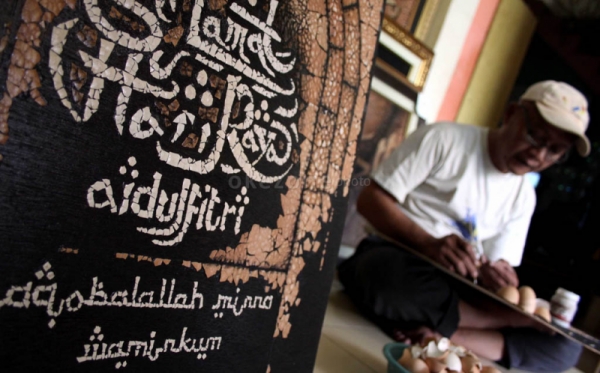 Selamat
Hari Raya
aidulfitri
taqobalallah minna
waminkum
okezone